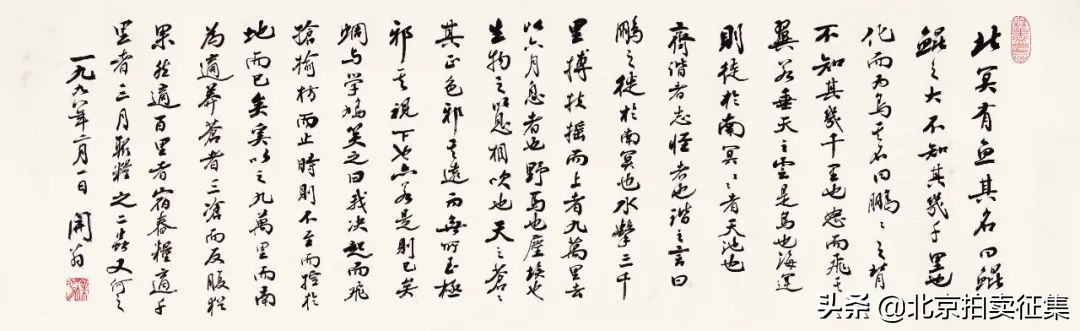 北冥有鱼其名曰鲲
鲲之大不知其几千里也
化而为鸟其名曰鹏鹏之背
不知其幾千里也怒而飞其
翼若垂天之雲是鸟也海運
則徙於南冥南冥者天池也
齊谐者志怪者也谐之言曰
鹏之徙於南冥也水擊三千
里搏扶摇而上者九萬里去
以六月息者也野馬也塵埃也
生物之以息相吹也天之苍苍
其正色邪其遠而無所至極
邪其視下也亦若是則已矣
蜩与学鳩笑之曰我决起而飛
搶榆枋而止時則不至而控於
地而已矣奚以之九萬里而南
為適莽蒼者三飡而反腹猶
果然適百里者宿舂糧適千
里者三月聚糧之二蟲又何知
一九九八年二月一日 開翁
头条 @北京拍卖征集